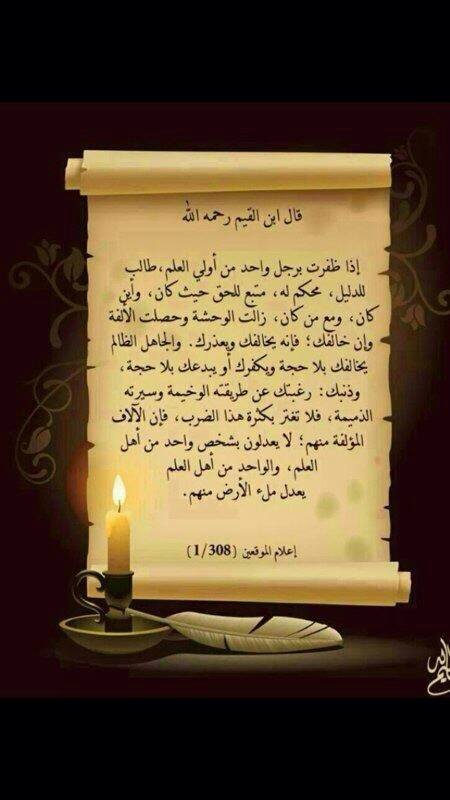 قال ابن القيم رحمه الله
إذا ظفرت برجل واحد من أولي العلم، طالب
للدليل، محكم له، متبع للحق حيث كان، وأين
كان، ومع من كان، زالت الوحشة وحصلت الألفة
وإن خالفك؛ فإنه يخالفك ويعذرك. والجاهل الظالم
يخالفك بلا حجة ويكفرك أو يبدعك بلا حجة،
وذنبك: رغبتك عن طريقته الوخيمة وسيرته
الذميمة، فلا تغتر بكثرة هذا الضرب، فإن الآلاف
المؤلفة منهم؛ لا يعدلون بشخص واحد من أهل
العلم، والواحد من أهل العلم
يعدل ملء الأرض منهم.
إعلام الموقعين (1/308)